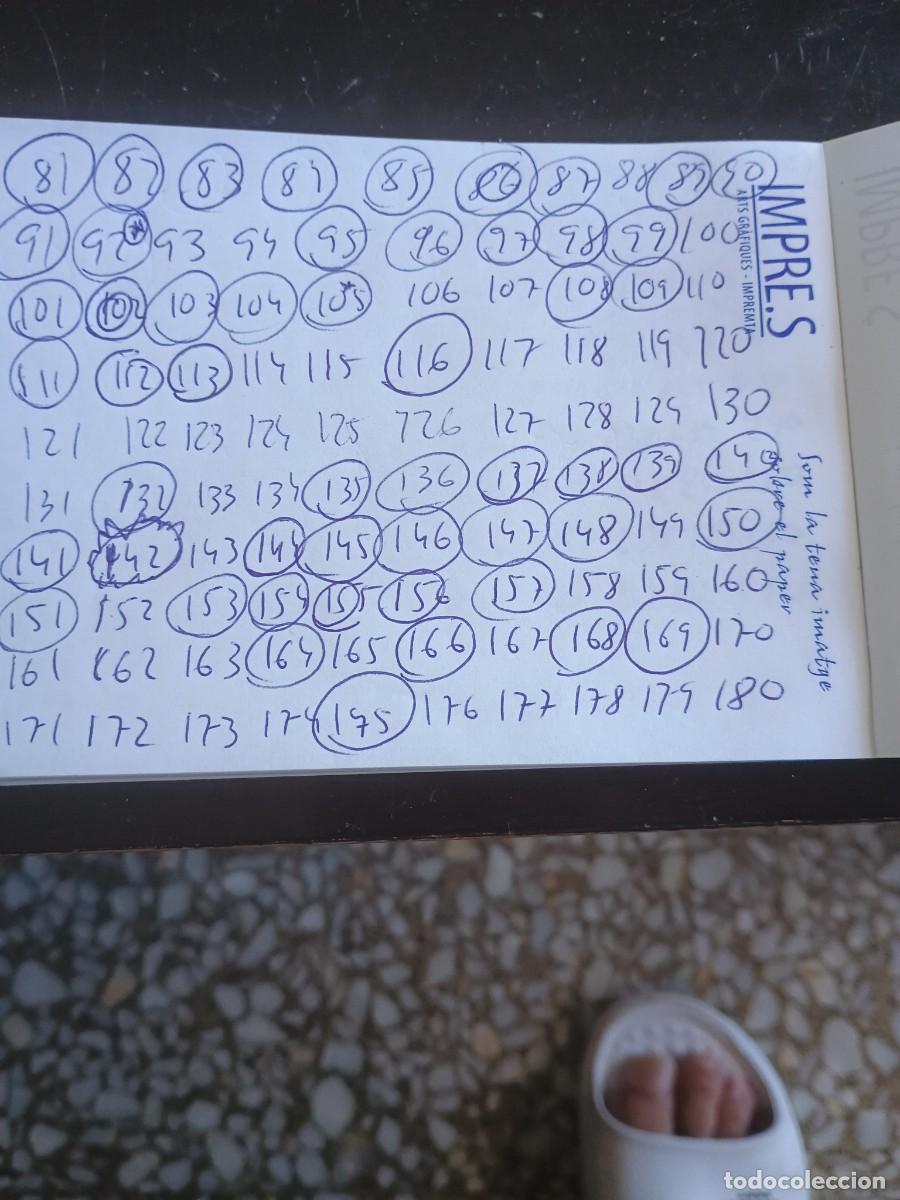 81 82 83 84 85 86 87 88 89 90
91 92 93 94 95 96 97 98 99 100
101 102 103 104 105 106 107 108 109 110
111 112 113 114 115 116 117 118 119 120
121 122 123 124 125 126 127 128 129 130
131 132 133 134 135 136 137 138 139 140
141 142 143 144 145 146 147 148 149 150
151 152 153 154 155 156 157 158 159 160
161 162 163 164 165 166 167 168 169 170
171 172 173 174 175 176 177 178 179 180
IMPRE.S
ARTS GRÀFIQUES - IMPREMTA
Som la teva imatge
sobre el paper
todocoleccion